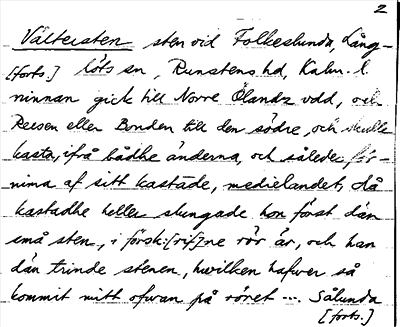 2
Vältersten sten vid Folkeslunda, Lång-
[forts.] löts sn, Runstens hd, Kalm. l.
ninnan gick till Norre Ölandz udd, och
Reesen eller Bonden till den södre, och skulle
kasta, ifrå bådhe änderna, och således för-
nima af sitt kastade, medielandet, då
kastadhe heller slungade hon först dän
små sten, i försk:[rif]ne rör är, och han
dän trinde stenen, hwilken hafwer så
kommit mitt ofwan på röret --- Sålunda
[forts.]